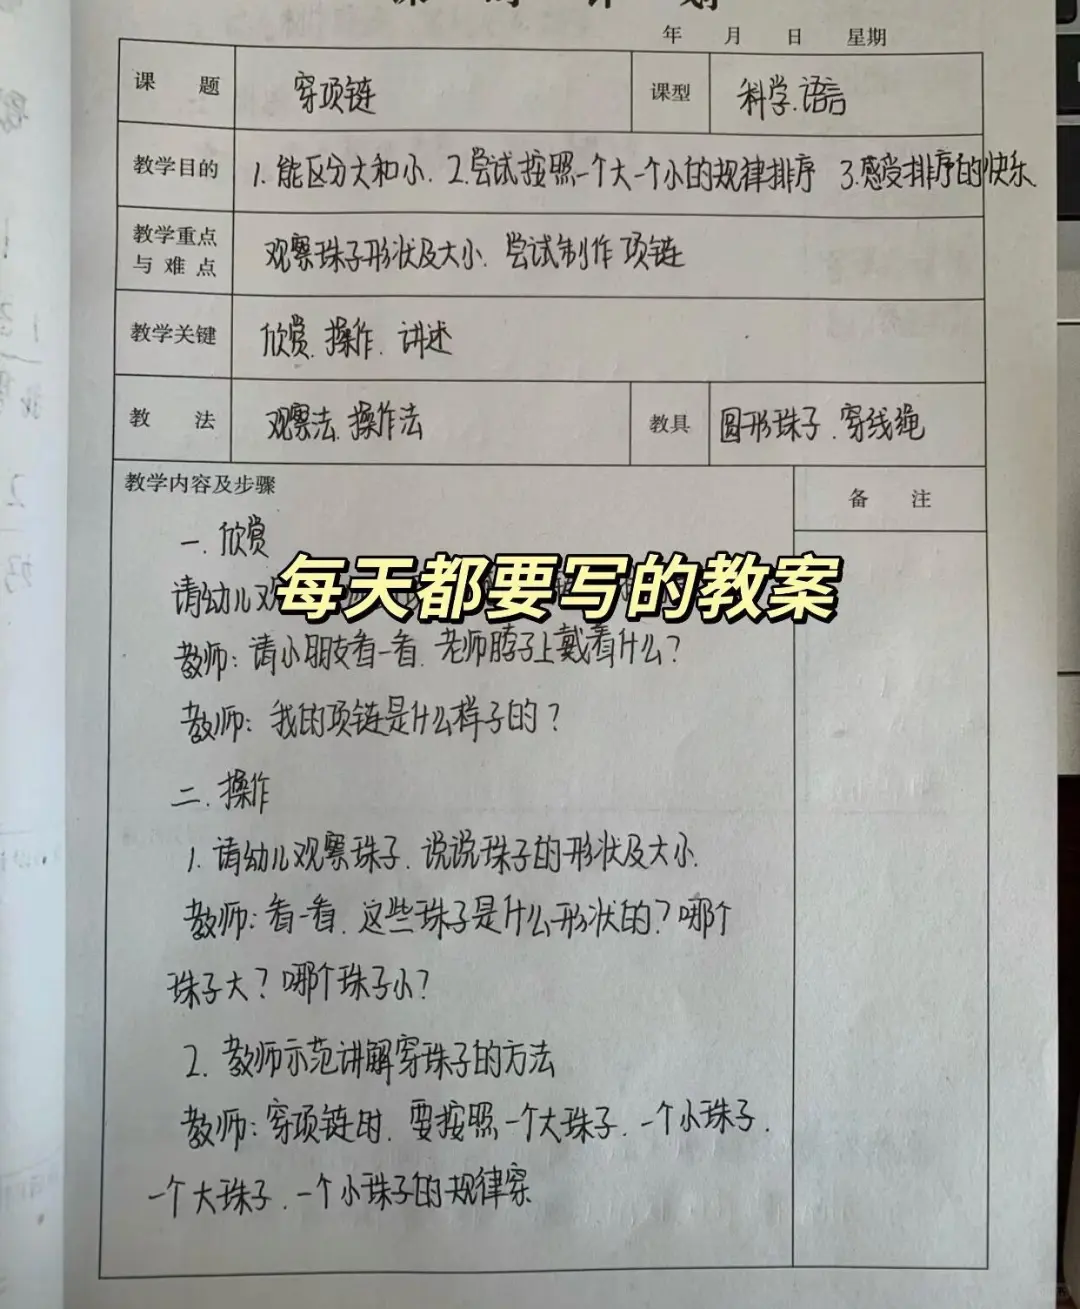 课时计划
年 月 日 星期
课 题 穿项链 课型 科学.语言
教学目的 1.能区分大和小. 2.尝试按照一个大一个小的规律排序 3.感受排序的快乐.
教学重点与难点 观察珠子形状及大小. 尝试制作项链
教学关键 欣赏. 操作. 讲述
教 法 观察法.操作法 教具 圆形珠子.穿线绳
教学内容及步骤 备 注
一.欣赏
请幼儿观
每天都要写的教案
教师:请小朋友看一看.老师脖子上戴着什么?
教师:我的项链是什么样子的?
二.操作
1.请幼儿观察珠子.说说珠子的形状及大小.
教师:看一看.这些珠子是什么形状的?哪个
珠子大?哪个珠子小?
2.教师示范讲解穿珠子的方法
教师:穿项链时.要按照一个大珠子.一个小珠子.
一个大珠子.一个小珠子的规律穿